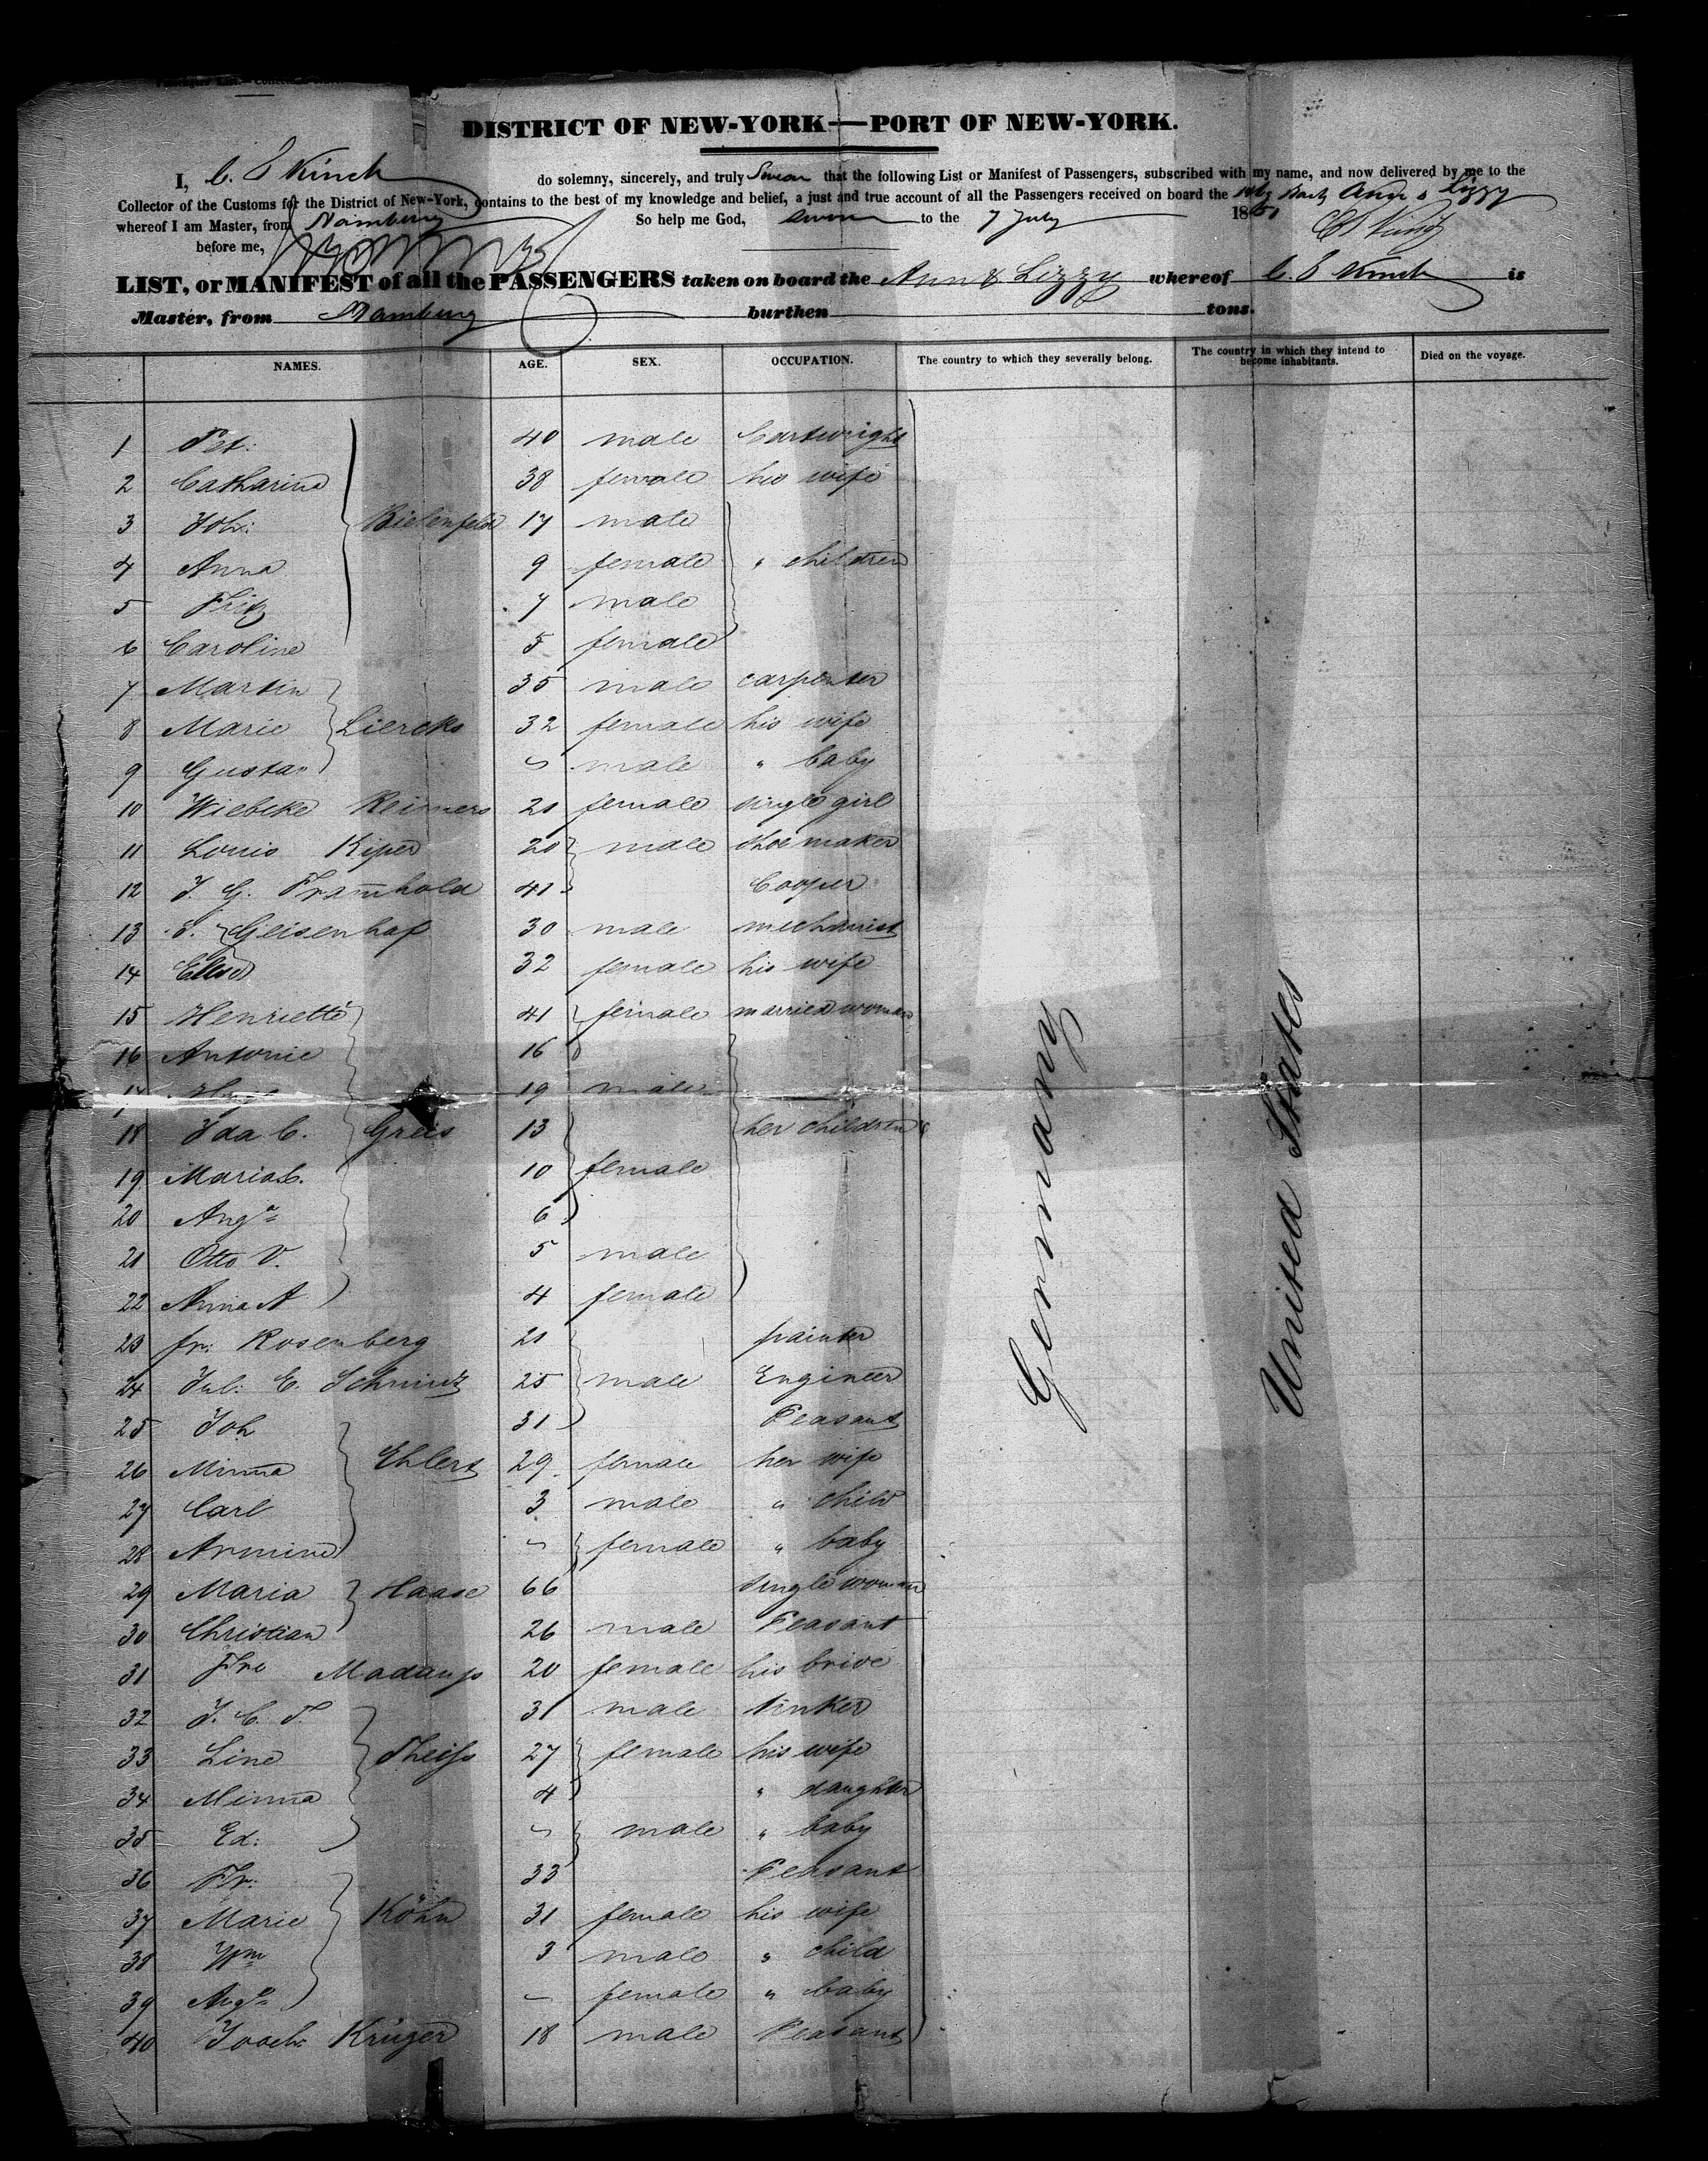 DISTRICT OF NEW-YORK—PORT OF NEW-YORK.
I, C. E Kinch do solemny, sincerely, and truly Swear that the following List or Manifest of Passengers, subscribed with my name, and now delivered by me to the
Collector of the Customs for the District of New-York, contains to the best of my knowledge and belief, a just and true account of all the Passengers received on board the Bark Ann & Lizzy
whereof I am Master, from Hamburg So help me God, sworn to the 7 July 1851
before me,
LIST, or MANIFEST of all the PASSENGERS taken on board the Ann & Lizzy whereof C E Kinch is
Master, from Hamburg burthen tons.
NAMES. AGE. SEX. OCCUPATION. The country to which they severally belong. The country in which they intend to become inhabitants. Died on the voyage.
1 Pet: 40 male Cartwright
2 Catharina 38 female his wife
3 Joh: Bielenfeld 17 male
4 Anna 9 female " children
5 Fritz 7 male
6 Caroline 5 female
7 Martin 35 male carpenter
8 Marie Liercks 32 female his wife
9 Gustav male " baby
10 Wiebcke Reimers 21 female single girl
11 Louis Kiper 20 male shoemaker
12 J. G. Framhold 41 Cooper
13 Geisenhaf 30 male mechanist
14 Elise 32 female his wife
15 Henriette 41 female married woman
16 Antonie 16
17 19 male
18 Ida C. Greis 13 her children
19 Maria C. 10 female
20 Auga 6
21 Otto V. 5 male
22 Anna A 4 female
23 fr: Rosenberg 21 painter
24 Jul: E. Schmidt 25 male Engineer
25 Joh 31 Peasant
26 Minna Ehlert 29 female her wife
27 Carl 3 male " child
28 Armine female " baby
29 Maria Haase 66 single woman
30 Christian 26 male Peasant
31 Fre Madauss 20 female his bride
32 J. C. T. 31 male tinker
33 Line Theiss 27 female his wife
34 Minna 4 " daughter
35 Ed: male " baby
36 Fr: 33 Peasant
37 Marie Köhn 31 female his wife
38 Wm 3 male " child
39 Auga female " baby
40 Joach: Krüger 18 male Peasant
Germany
United States